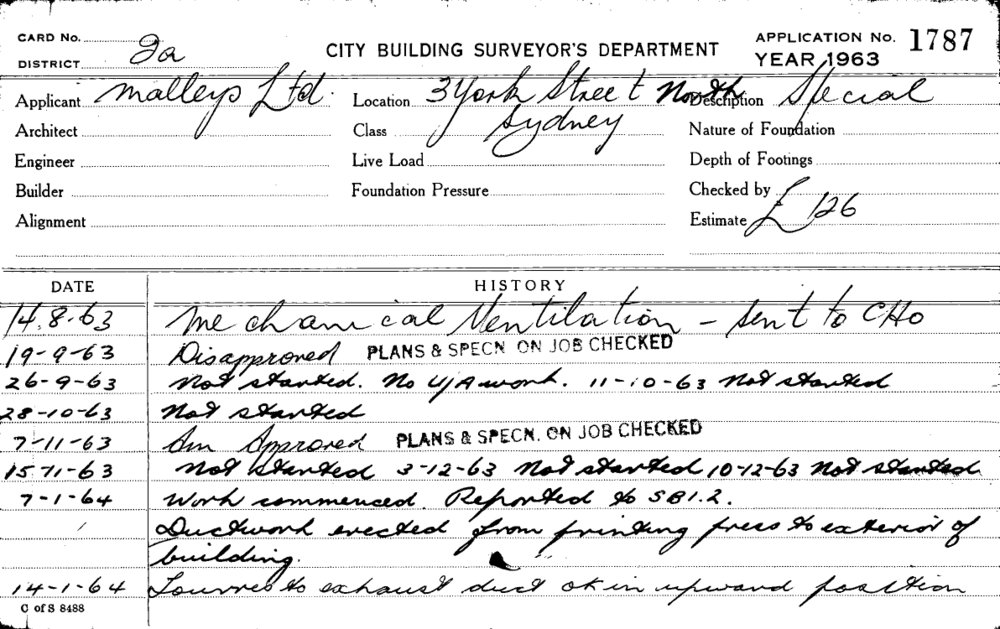 CARD No.
DISTRICT 2a
CITY BUILDING SURVEYOR'S DEPARTMENT
APPLICATION No. 1787
YEAR 1963
Applicant Malleys Ltd. Location 3 York Street North Description Special
Architect Class Sydney Nature of Foundation
Engineer Live Load Depth of Footings
Builder Foundation Pressure Checked by
Alignment Estimate £ 126
DATE HISTORY
14.8.63 Mechanical Ventilation - sent to CHO
19-9-63 Disapproved PLANS & SPECN. ON JOB CHECKED
26-9-63 Not started. No U/A work. 11-10-63 Not started
28-10-63 Not started
7-11-63 Am Approved PLANS & SPECN. ON JOB CHECKED
15-11-63 Not started 3-12-63 Not started 10-12-63 Not started
7-1-64 Work commenced. Reported to SBI.2.
Ductwork erected from printing press to exterior of
building.
14-1-64 Louvres to exhaust duct ok in upward position
C of S 8488